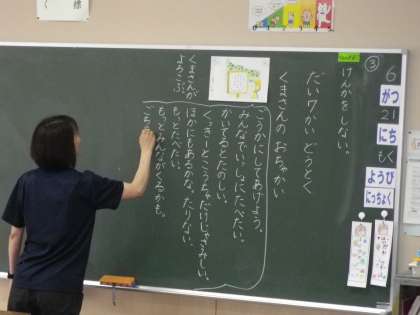 ③
6
がつ
21
にち
もく
ようび
にっちょく
けんかをしない。
だい7かい どうとく
くまさんの おちゃかい
くまさんが
よろこぶ。
こうかんしてあげよう。
みんなでいっしょにたべたい。
かいてるとたのしい。
クッキーとこうちゃだけじゃさみしい。
ほかにもあるかな、たりない、
もっとたべたい。
もっとみんながくるかも。